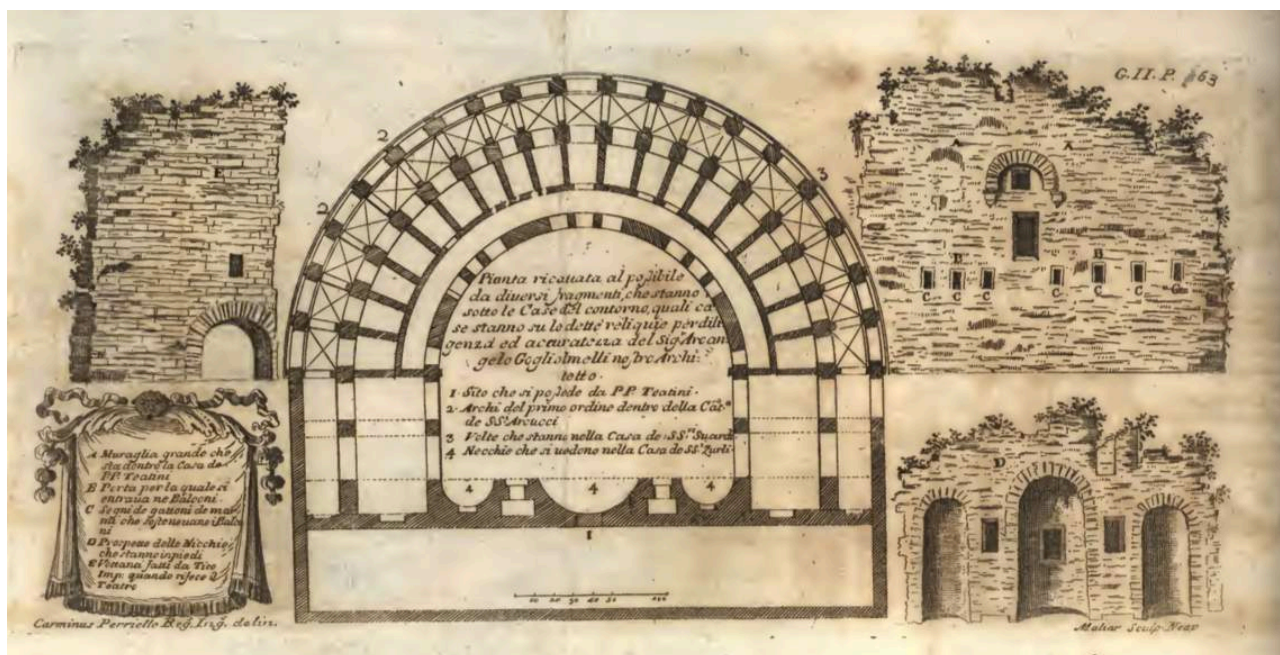 G. II. P. 63
2
3
2
E
A A
B B
C C C C C C C
D
Pianta ricauata al possibile
da diuersi fragmenti, che stanno
sotto le Case del contorno, quali ca
se stanno su le dette reliquie per dili
genza ed accuratezza del Sig. Arcan
gelo Gogliolmelli nostro Archi:
tetto.
1. Sito che si possede da PP. Teatini.
2. Archi del primo ordine dentro della Cas.ª
de SS.ri Arcucci
3 Volte che stanno nella Casa de SS.ri Suardi
4 Necchie che si uedono nella Casa de SS.ri Zurli.
4 4 4
1
10 20 30 40 50 100
A Muraglia grande che
sta dentro la Casa de
PP. Teatini
B Porta per la quale si
entraua ne Balconi.
C Segni de gattoni de mar
mi che sosteneuano i Balco
ni
D Prospetto delle Nicchie
che stanno in piedi
E fatti da Tito
Imp: quando rifece il
Teatro
Carminus Perriello Reg. Ing. delin.
Maliar Sculp. Neap